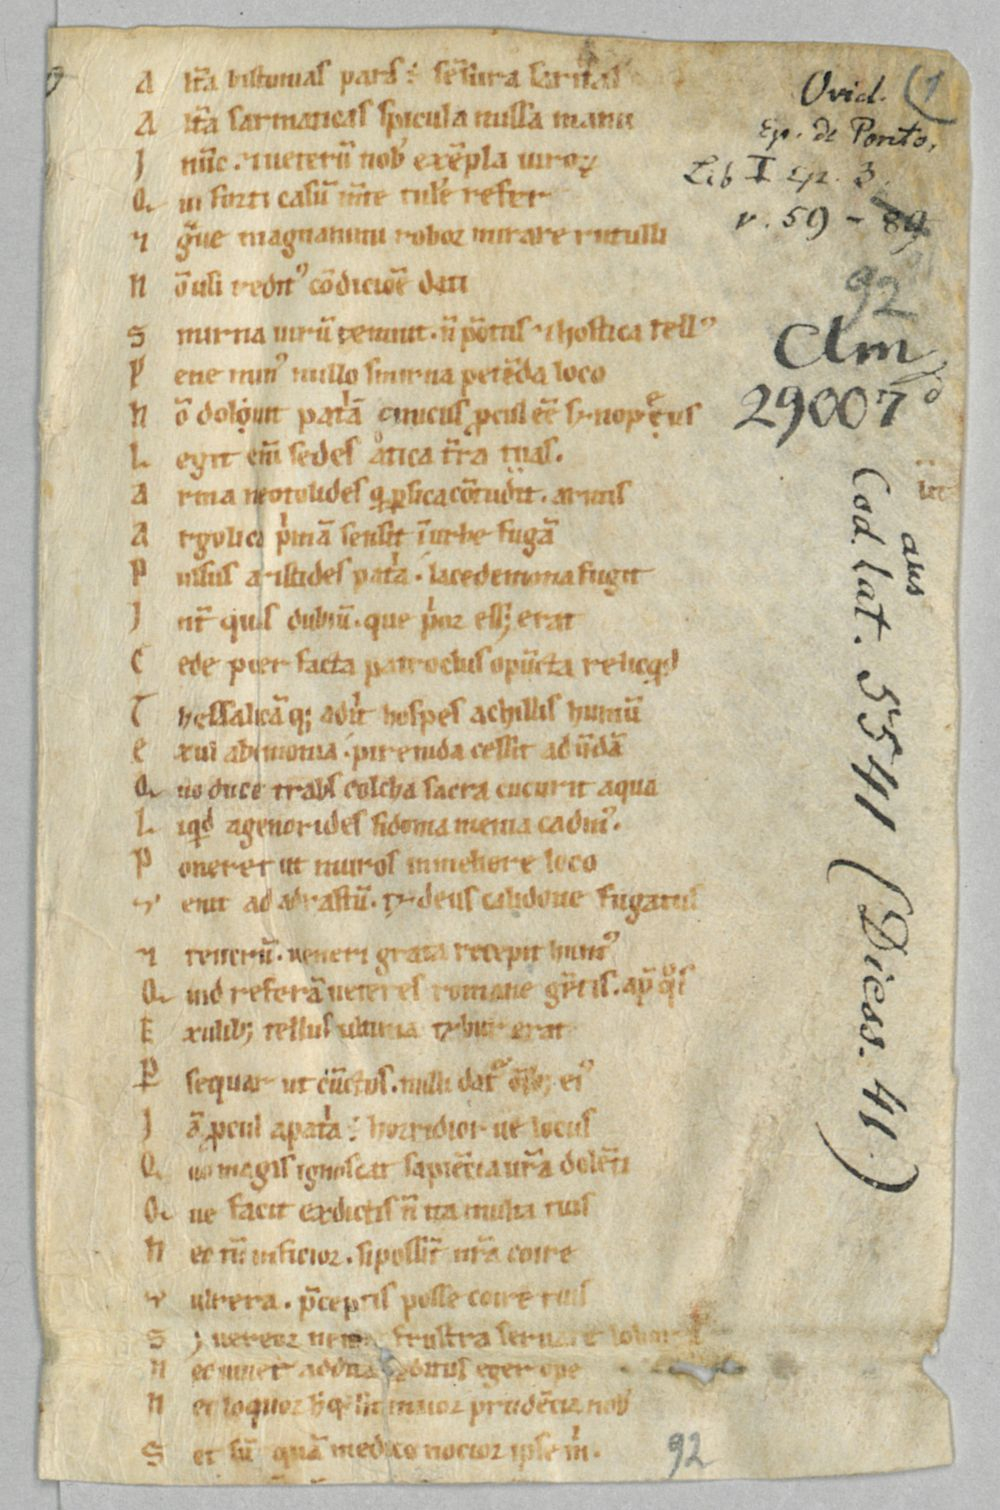 A lt̄a bistonias pars ÷ sēsura sarissas
A lt̄a sarmaticas spicula missa manu
I nūc . ⁊ ueterū nob' exēpla uiroꝝ
Q ui forti casū m̄te tul'e refer
⁊ g̃ue magnanimi robor mirare rutulli
N ō usi reditꝰ cōdicioē dati
S mirna uirū tenuit . n̄ pōtus ⁊ hostica tellꝰ
P ene minꝰ nullo smirna petēda loco
N ō doluit pat'ā cinicus ꝓcul eē synopeus
L egit em̄ sedes atica t̄ra tuas .
A rma neoclides q p̱sica cōtudit . armis
A rgolica p'mā sensit ī urbe fugā
P ulsus aristides pat'a . lacedemona fugit
I nt̄ quas dubiū . que p'or ess; erat
C ede puer facta patroclus opūcta reliqd
T hessalicā q; adiit hospes achillis humū
E xul ab emonia . pirenida cessit ad ūdā
Q uo duce trabs colcha sacra cucurit aqua
L iqd agenorides sidonia menia cadmꝰ .
P oneret ut muros in meliore loco
V enit ad adrastū . tydeus calidone fugatus
⁊ teucrū . ueneri grata recepit humꝰ
Q uid referā ueteres romane gētis . ap̄ qͦs
E xulib; tellus ultima tybur erat
P sequar ut cūctos . nulli dat᷑ oīb; euo
I ā ꝓcul a pat'a ÷ horridior ue locus
Q uo magis ignoscat sapiētia ur̄a dolēti
Q ue facit ex dictis n̄ ita multa tuis
N ec tn̄ inficior . si possit nr̄a coire
V ulnera . p̄ceptis posse coire tuis
S ; uereor ne me frustra seruare labores
N ec iuuer admota pditus eger ope
N ec loquor h̄ q sit maior prudētia nob'
S et sū quā medico notior ipse m' .
Ovid. (1
Ep. de Ponto,
Lib I Ep. 3.
v. 59 – 89
92
Clm
29007
aus
Cod. lat. 5541 (Diess. 41.)
92